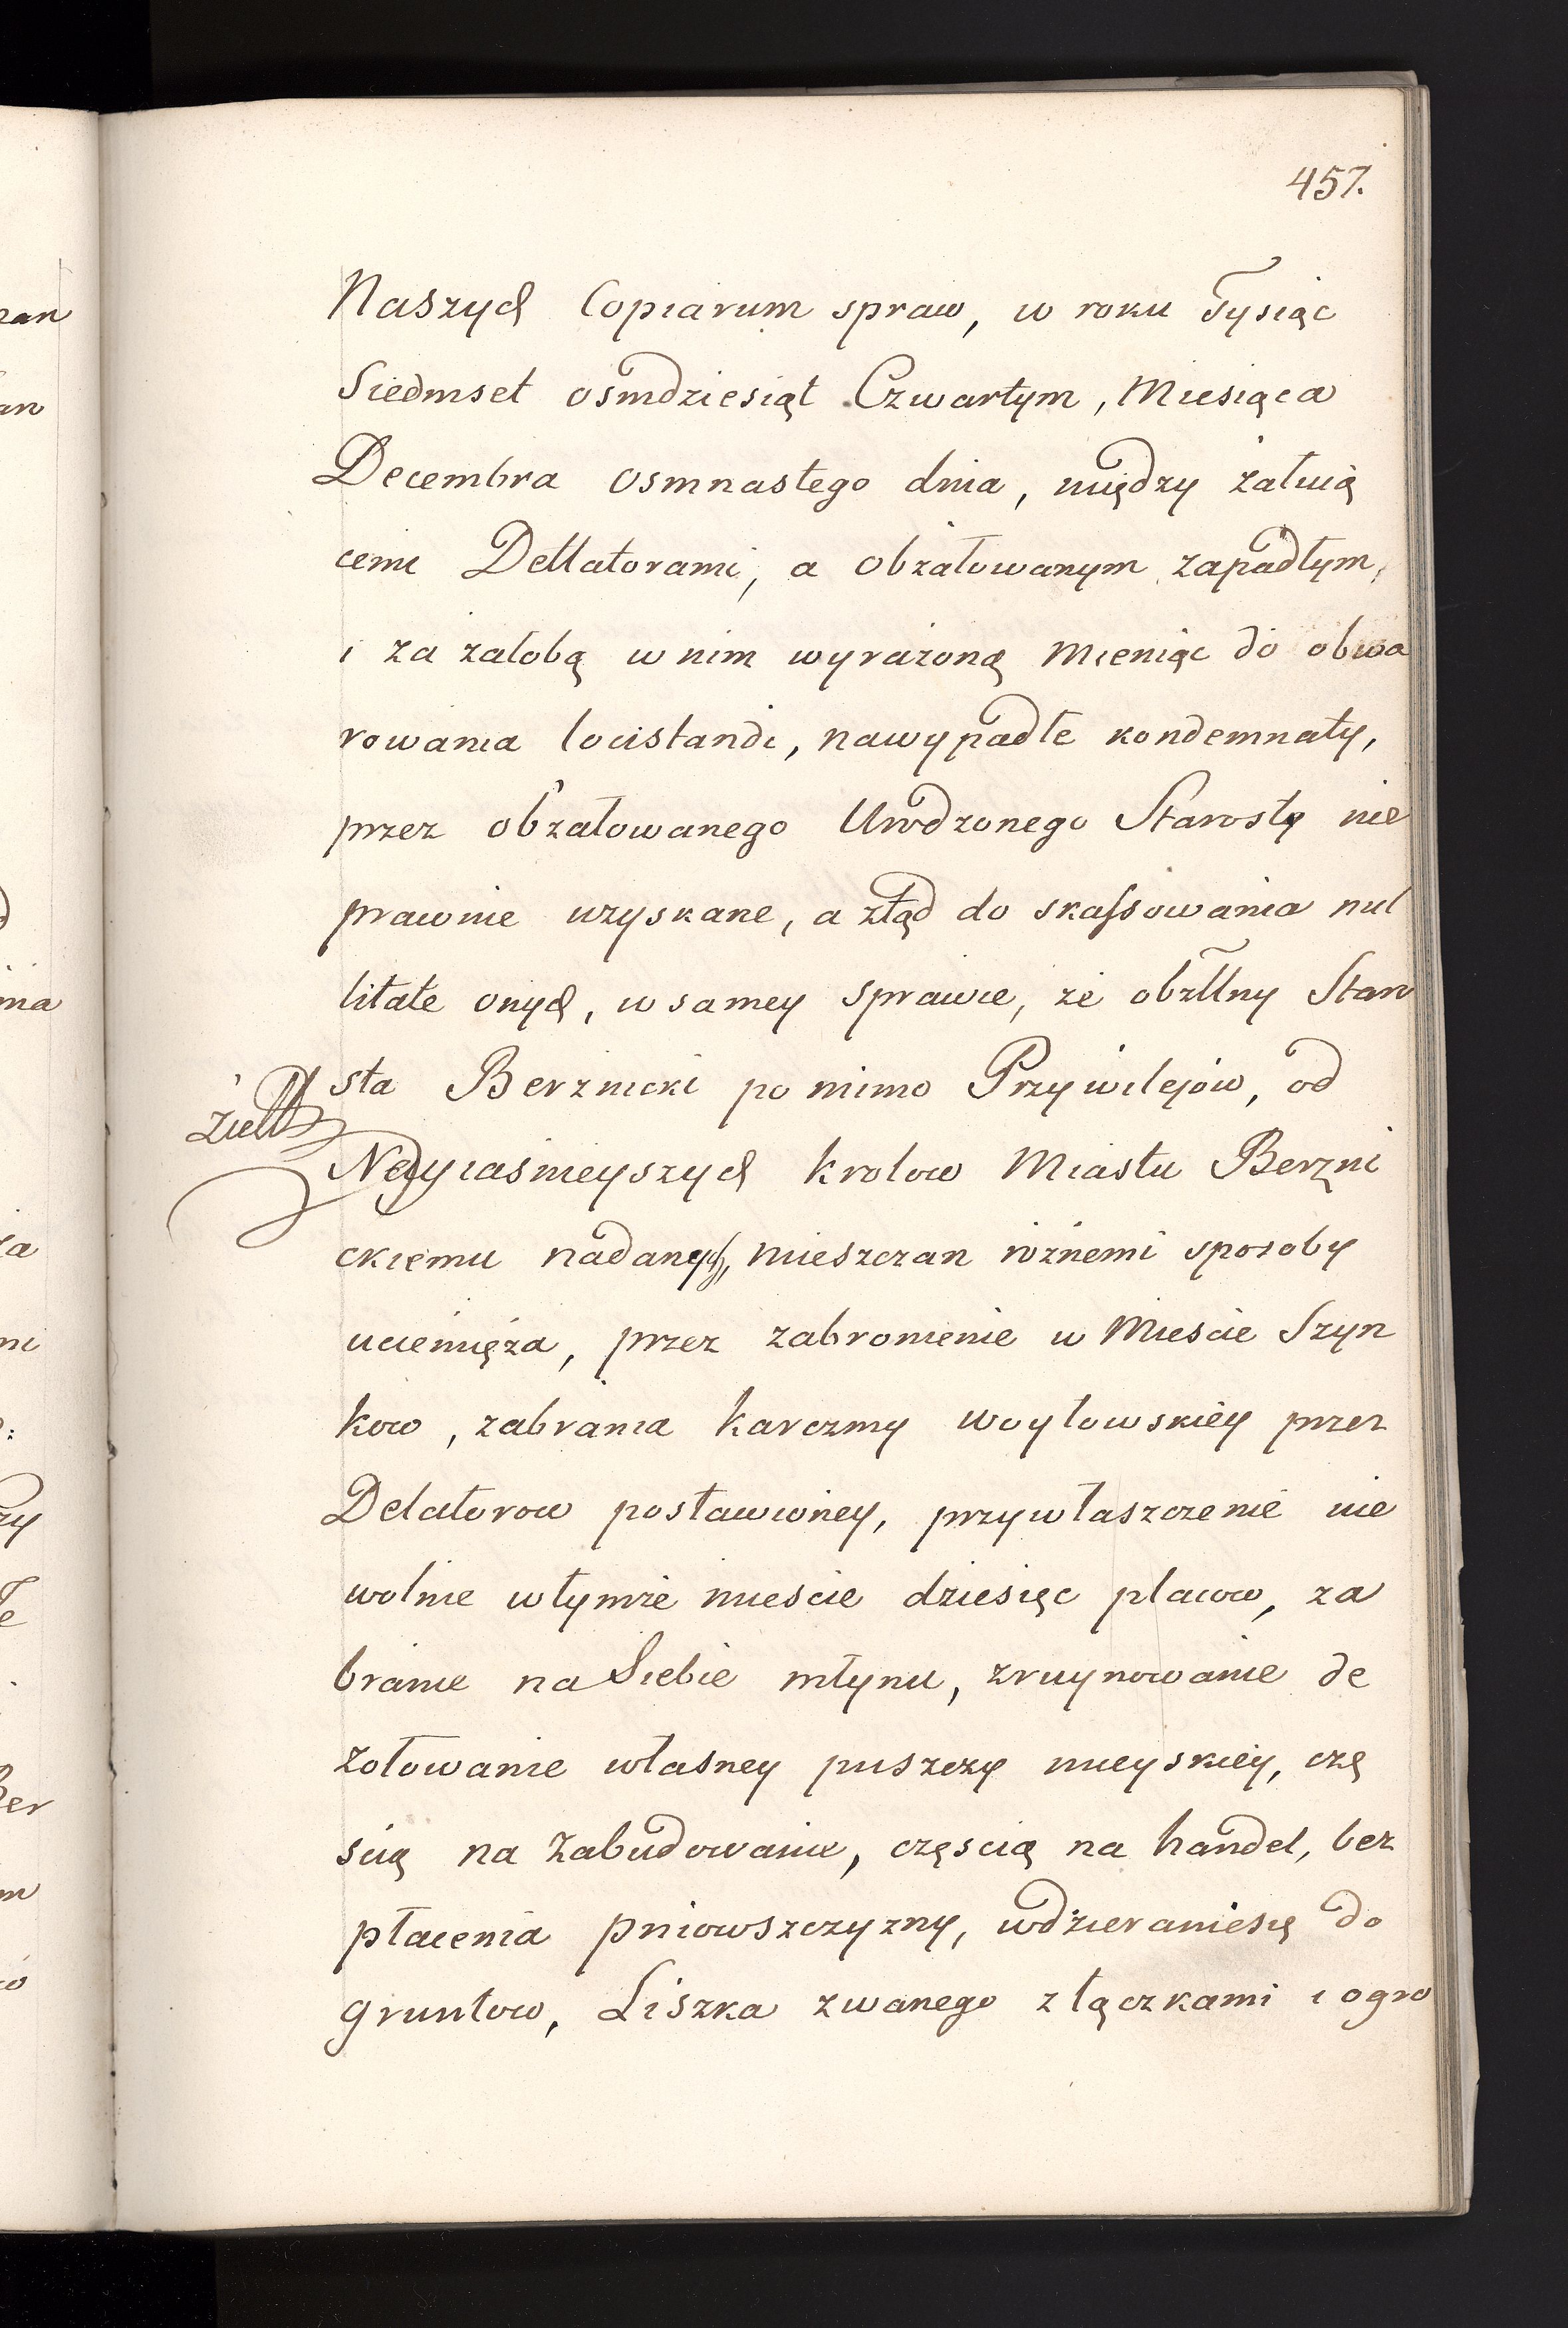 457.
Naszych Copiarum spraw, w roku Tysiąc
Siedmset osmdziesiąt Czwartym, Miesiąca
Decembra Osmnastego dnia, między żałuią
cemi Dellatorami, a obżałowanym zapadłym,
i za załobą w nim wyrażoną Mieniąc do obwa
rowania locistandi, nawypadłe kondemnaty,
przez obżałowanego Urodzonego Starostę nie
prawnie uzyskane, a ztąd do skassowania nul
litate onych, w samey sprawie, że obżłlny Staro
sta Berznicki po mimo Przywilejów, od
Nayiaśnieyszych krolow Miastu Berzni
ckiemu nadanych, mieszczan rożnemi sposoby
uciemięża, przez zabronienie w Mieście Szyn
kow, zabrania karczmy woytowskiey przez
Delatorow postawioney, przywłaszczenie nie
wolnie wtymże mieście dziesięc placow, za
branie na Siebie młynu, zruynowanie de
zotowanie własney puszczy mieyskiey, czę
scią na zabudowanie, częscią na handel, bez
płacenia pniowszczyzny, wdzieraniesię do
gruntow, Liszka zwanego z łączkami i ogro